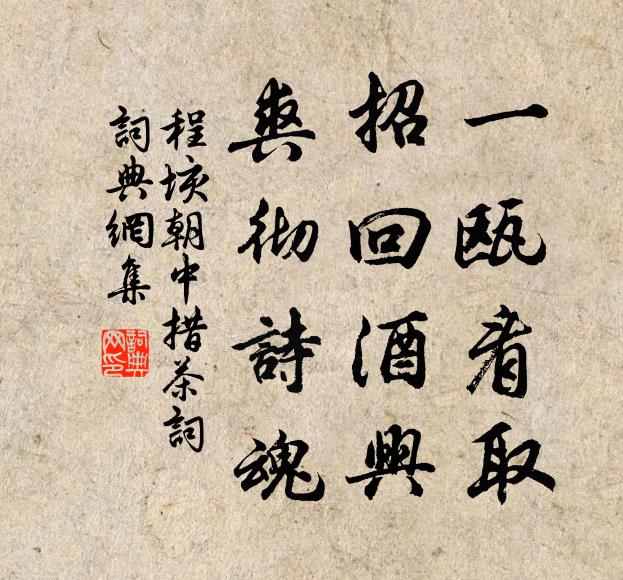 一瓯看取
招回酒興
爽彻詩魂
程垓朝中措茶詞
詞典網集
詞典
网印